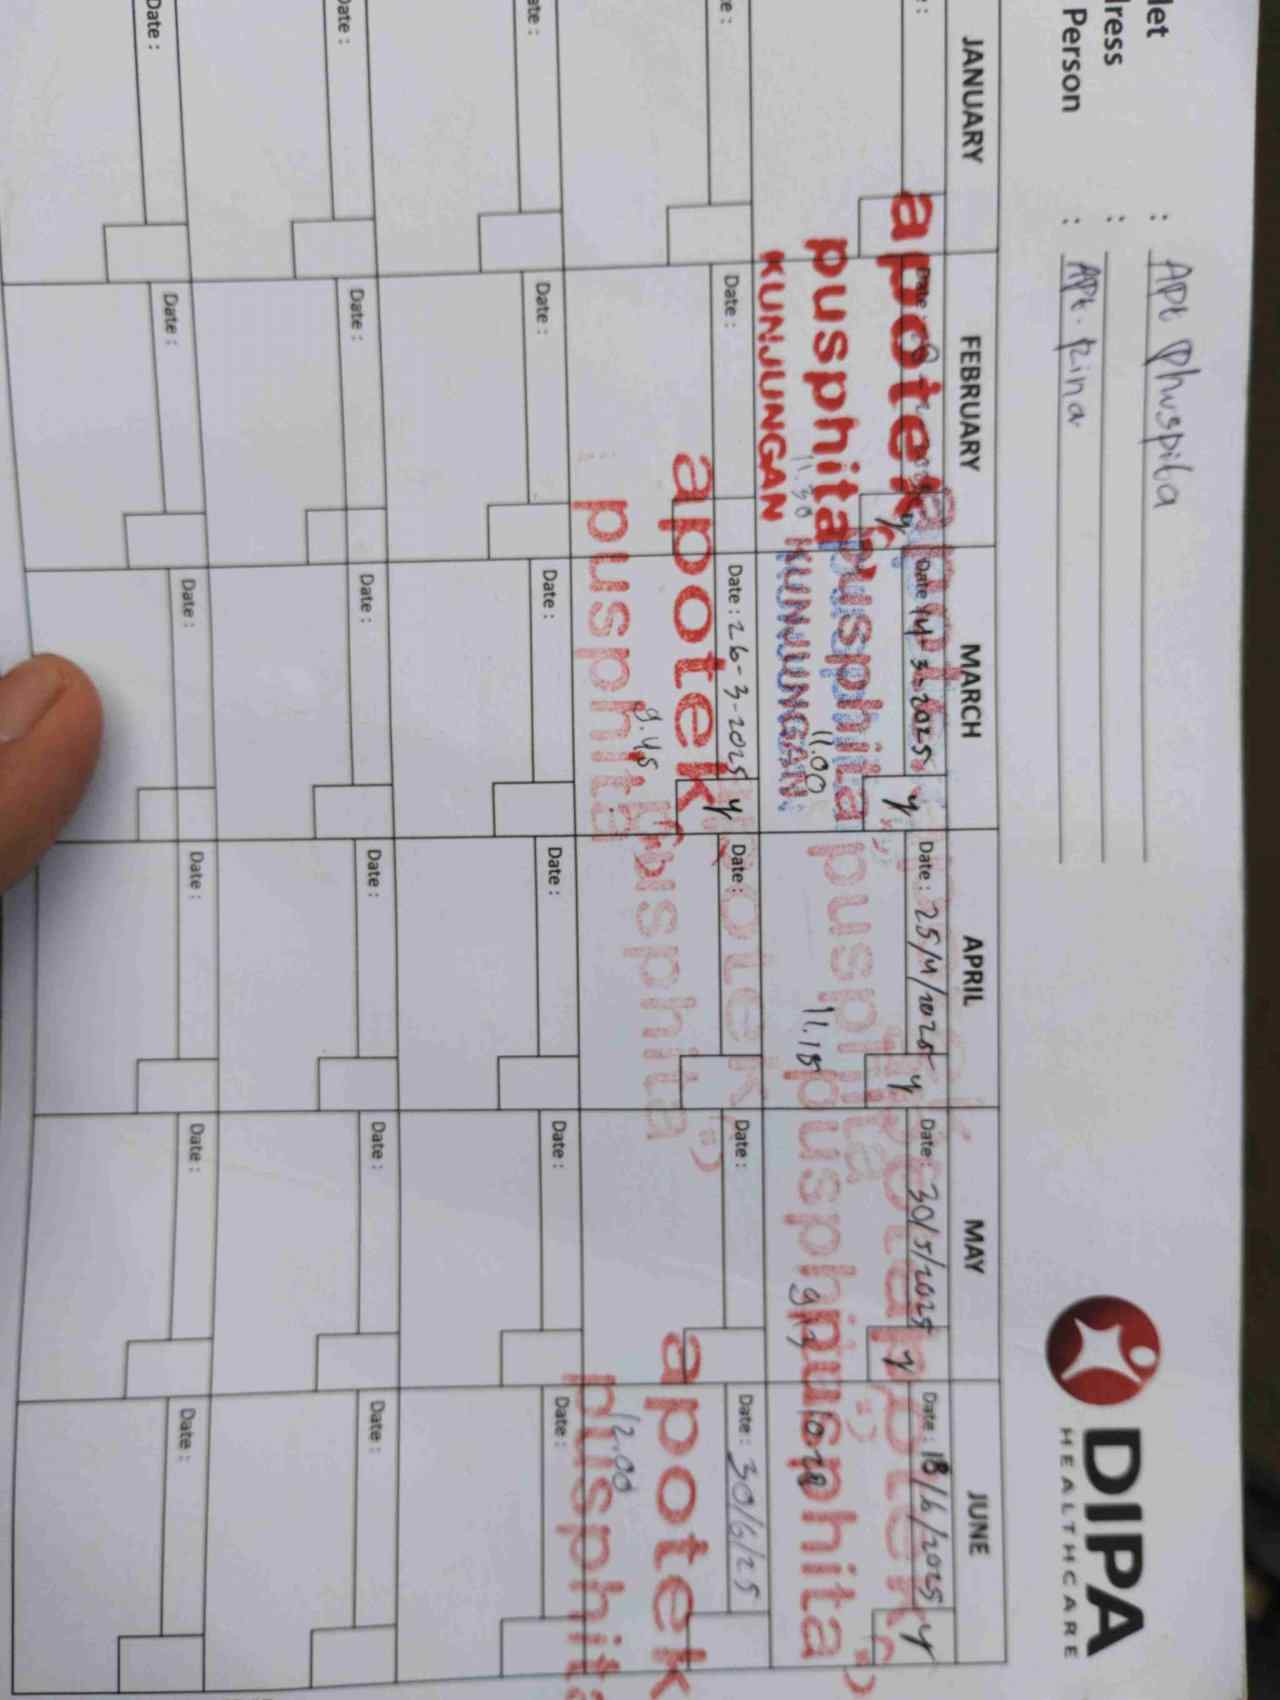 DIPA
HEALTHCARE
let : Apt Phuspita
ress :
Person : Apt. Rina
JANUARY FEBRUARY MARCH APRIL MAY JUNE
e : Date : Date : 14-3-2025 y Date : 25/4/2025 y Date : 30/5/2025 y Date : 18/6/2025 y
apotek
pusphita 11.30 pusphita 11.00 pusphita 11.15 pusphita pusphita
KUNJUNGAN KUNJUNGAN
e : Date : Date : 26-3-2025 y Date : Date : Date : 30/6/25
apotek apotek
pusphita 9.45 pusphita 12.00 pusphita
ate : Date : Date : Date : Date : Date :
Date : Date : Date : Date : Date : Date :
Date : Date : Date : Date : Date : Date :